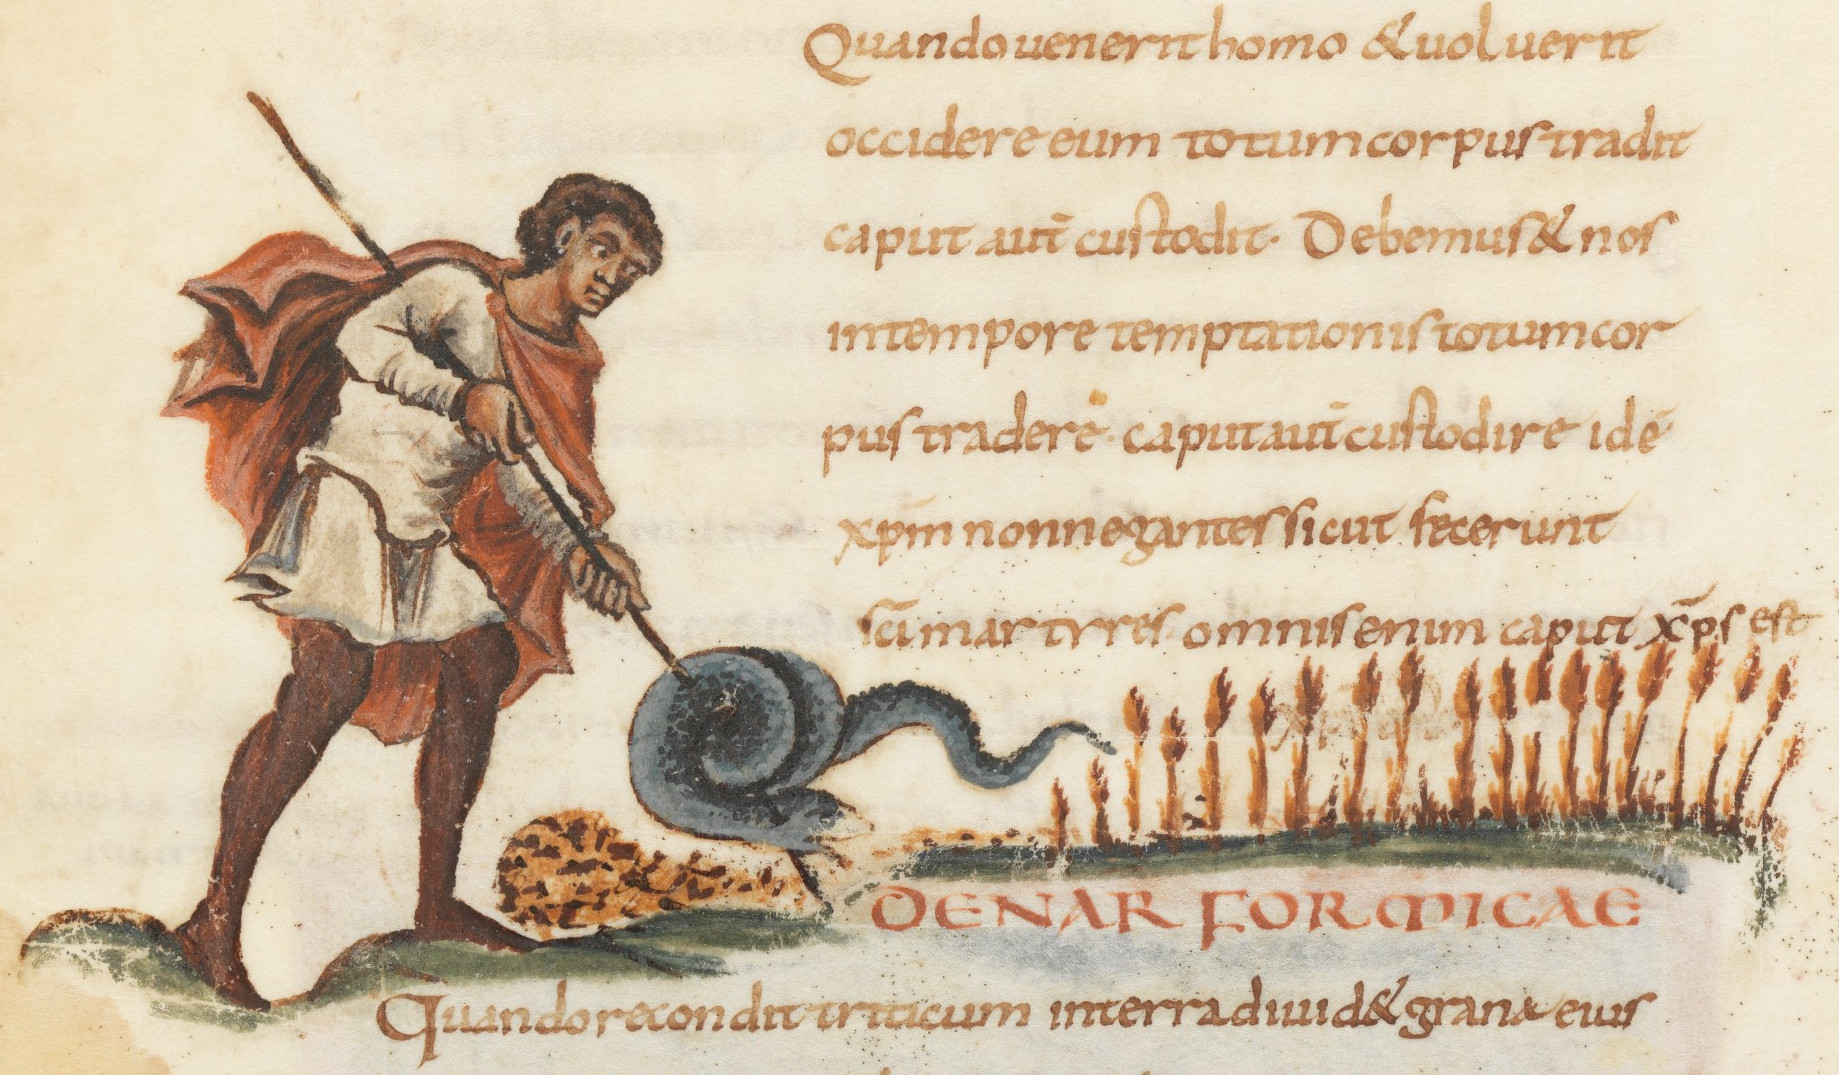 Quando uenerit homo & uoluerit
occidere eum totum corpus tradit
caput aut̄ custodit· Debemus & nos
in tempore temptationis totum cor
pus tradere· caput aut̄ custodire idē·
xp̄m non negantes sicut fecerunt
sc̄i martyres· omnis enim caput xp̄s est
DE NAR FORMICAE
Quando recondit triticum in terra diuid& grana eius